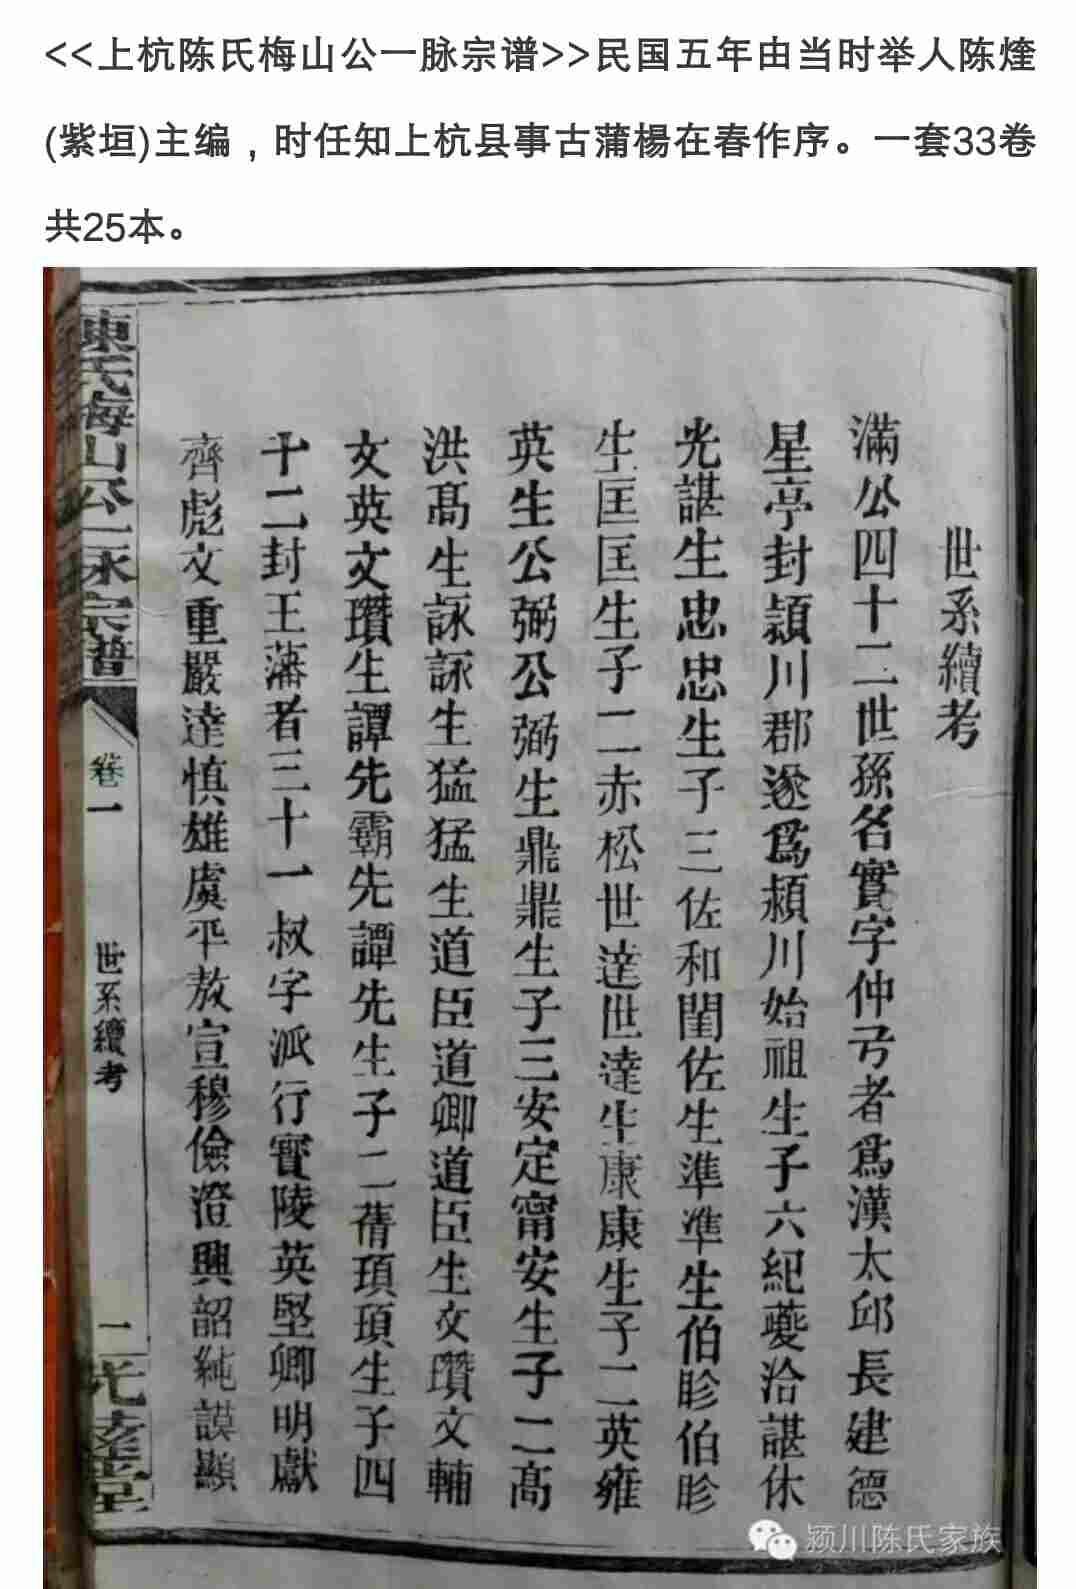 <<上杭陈氏梅山公一脉宗谱>>民国五年由当时举人陈煃
(紫垣)主编，时任知上杭县事古蒲楊在春作序。一套33卷
共25本。
世系續考
滿公四十二世孫名實字仲弓者爲漢太邱長建德
星亭封潁川郡遂爲潁川始祖生子六紀夔洽諶休
光諶生忠忠生子三佐和閨佐生準準生伯眕伯眕
生匡匡生子二赤松世達世達生康康生子二英雍
英生公弼公弼生鼎鼎生子三安定甯安生子二高
洪高生詠詠生猛猛生道臣道卿道臣生文瓚文輔
文英文瓚生譚先霸先譚先生子二蒨頊頊生子四
十二封王藩者三十一叔字派行實陵英堅卿明獻
齊彪文重嚴達慎雄虞平敖宣穆儉澄興韶純謨顯
陳氏梅山公一脉宗譜
卷一
世系續考
二
颍川陈氏家族